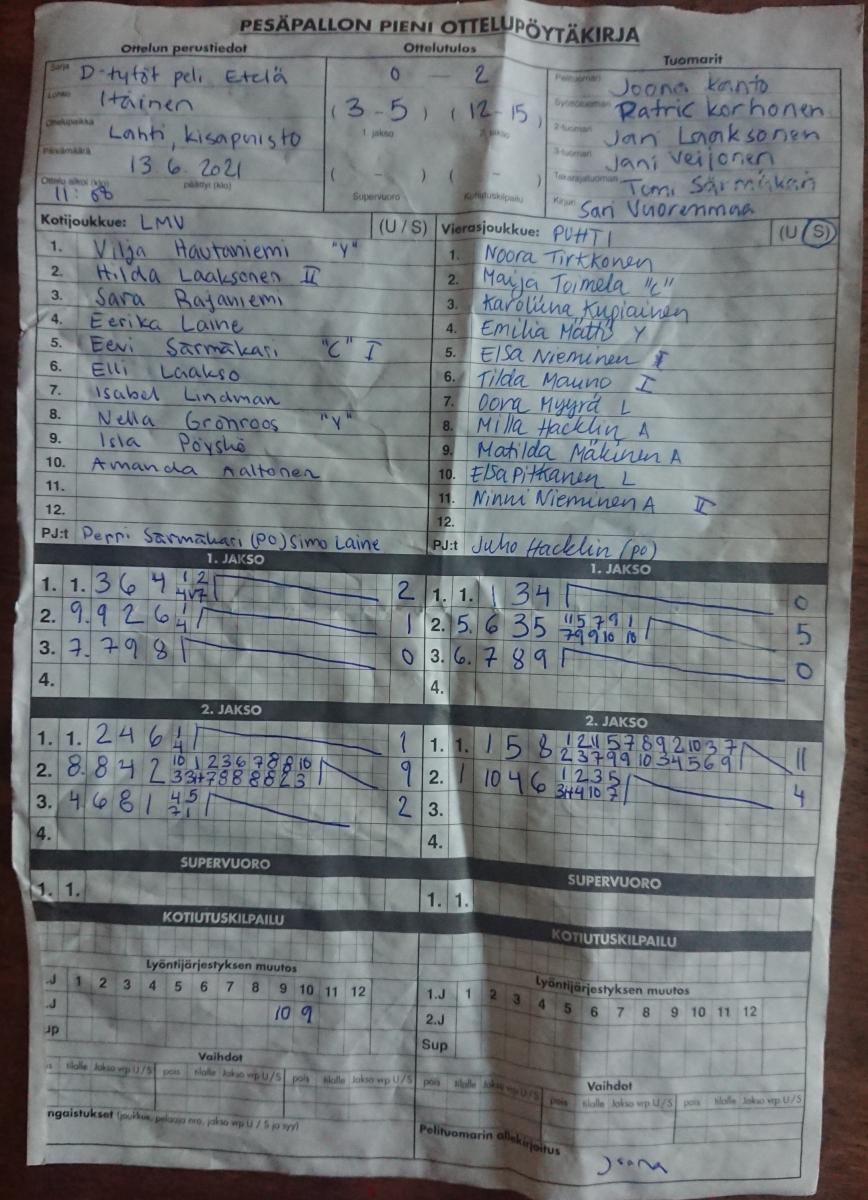 PESÄPALLON PIENI OTTELUPÖYTÄKIRJA
Ottelun perustiedot
Sarja D-tytöt peli Etelä
Lohko Itäinen
Ottelupaikka Lahti, kisapuisto
Päivämäärä 13.6.2021
Ottelu alkoi (klo) 11:08 päättyi (klo)
Ottelutulos
0 - 2
(3 - 5) (12 - 15)
1. jakso 2. jakso
( - ) ( - )
Supervuoro Kotiutuskilpailu
Tuomarit
Pelituomari Joona Kanto
Syöttötuomari Patric Korhonen
2-tuomari Jari Laaksonen
3-tuomari Jani Veijonen
Takarajatuomari Tomi Särmäkari
Kirjuri Sari Vuorenmaa
Kotijoukkue: LMV (U / S)
1. Vilja Hautaniemi "Y"
2. Hilda Laaksonen II
3. Sara Rajaniemi
4. Eerika Laine
5. Eevi Särmäkari "C" I
6. Elli Laakso
7. Isabel Lindman
8. Nella Grönroos "Y"
9. Isla Pöyskö
10. Amanda Aaltonen
11.
12.
PJ:t Perri Särmäkari (PO) Simo Laine
Vierasjoukkue: PUHTI (U / S)
1. Noora Tirkkonen
2. Maija Toimela "C"
3. Karoliina Kupiainen
4. Emilia Mättö Y
5. Elsa Nieminen
6. Tilda Mauno I
7. Oora Myyrä L
8. Milla Hacklin A
9. Matilda Mäkinen A
10. Elsa Pitkänen L
11. Ninni Nieminen A II
12.
PJ:t Juho Hacklin (po)
1. JAKSO
1. 1. 3 6 4 1 2 2
4 7
2. 9. 9 2 6 1 1
4
3. 7. 7 9 8 0
4.
1. JAKSO
1. 1. 1 3 4 0
2. 5. 6 3 5 11 5 7 9 1 5
7 9 9 10 10
3. 6. 7 8 9 0
4.
2. JAKSO
1. 1. 2 4 6 1 1
4
2. 8. 8 4 2 10 1 2 3 6 7 8 8 10 9
3 3 4 7 8 8 8 8 2 3
3. 4. 6 8 1 4 5 2
7 1
4.
2. JAKSO
1. 1. 1 5 8 1 2 11 5 7 8 9 2 10 3 7 11
2 3 7 9 9 10 3 4 5 6 9
2. 1 10 4 6 1 2 3 5 4
3 4 10 7
3.
4.
SUPERVUORO
1. 1.
SUPERVUORO
1. 1.
KOTIUTUSKILPAILU
KOTIUTUSKILPAILU
Lyöntijärjestyksen muutos
.J 1 2 3 4 5 6 7 8 9 10 11 12
.J 10 9
up
Lyöntijärjestyksen muutos
1.J 1 2 3 4 5 6 7 8 9 10 11 12
2.J
Sup
Vaihdot
is tilalle Jakso vrp U/S pois tilalle Jakso vrp U/S pois tilalle Jakso vrp U/S
Vaihdot
pois tilalle Jakso vrp U/S pois tilalle Jakso vrp U/S pois tilalle Jakso vrp U/S
ngaistukset (joukkue, pelaaja nro, jakso vrp U / S ja syy)
Pelituomarin allekirjoitus
Joona